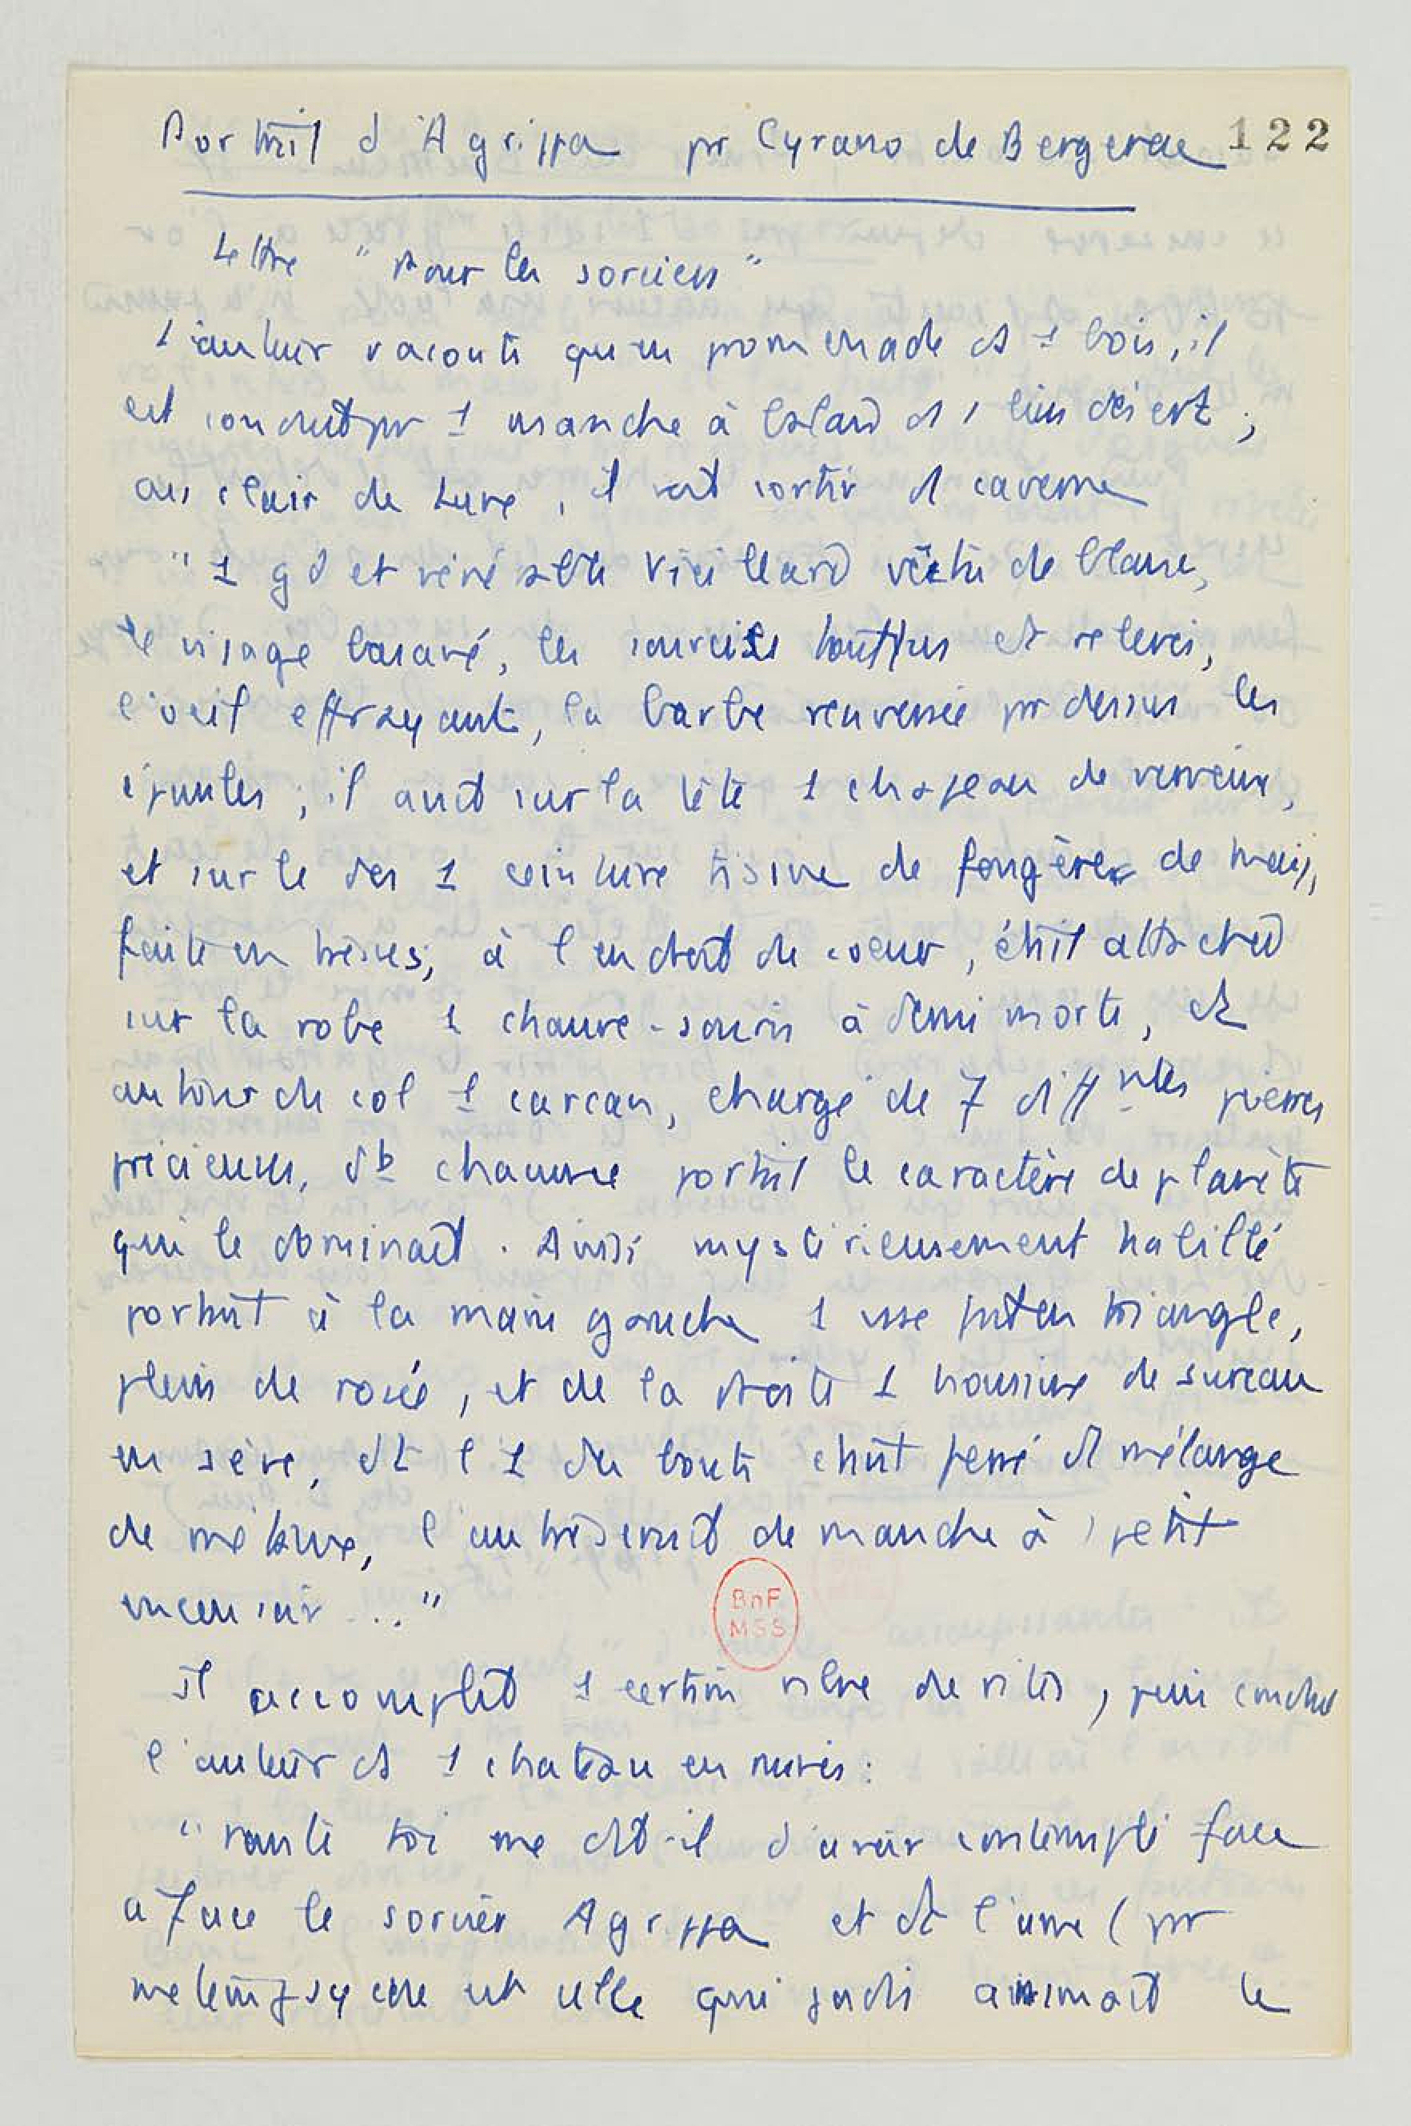 Portrait d'Agrippa pr Cyrano de Bergerac 122
Lettre "Pour les sorciers"
L'auteur raconte qu'en promenade ds 1 bois, il
est conduit pr 1 manche à balard ds 1 lieu désert ;
au clair de Lune, il voit sortir d caverne
"1 gd et vénérable vieillard vêtu de blanc,
le visage basané, les sourcils touffus et relevés,
l'oeil effrayant, la barbe renversée pr dessus les
épaules ; il avait sur la tête 1 chapeau de verveine,
et sur le dos 1 ceinture tissue de fougère de mai,
faite en tresses, à l'endroit du coeur, était attaché
sur la robe 1 chauve-souris à demi morte, et
autour du col 1 carcan, chargé de 7 diffntes pierres
précieuses, dt chacune portait le caractère de planète
qui le dominait. Ainsi mystérieusement habillé
portant à la main gauche 1 vase fait en triangle,
plein de rosée, et de la droite 1 houssine de sureau
en sève, dt l'1 des bouts était ferré d mélange
de métaux, l'autre servait de manche à 1 petit
encensoir..."
BnF
MSS
Il accomplit 1 certain nbre de rites, puis conduit
l'auteur ds 1 chateau en ruines :
"vante toi me dit-il d'avoir contemplé face
à face le sorcier Agrippa et dt l'âme (pr
metempsycose est celle qui jadis animait le